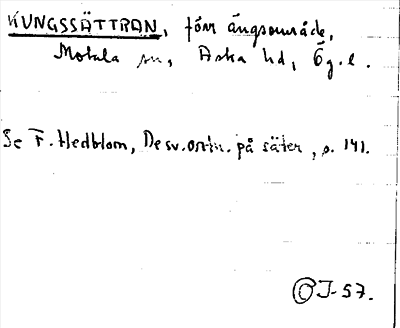 KUNGSSÄTTRAN, förr ängsområde,
Motala sn, Aska hd, Ög.l.
Se F. Hedblom, De sv. ortn. på säter, s. 141.
OJ-57.